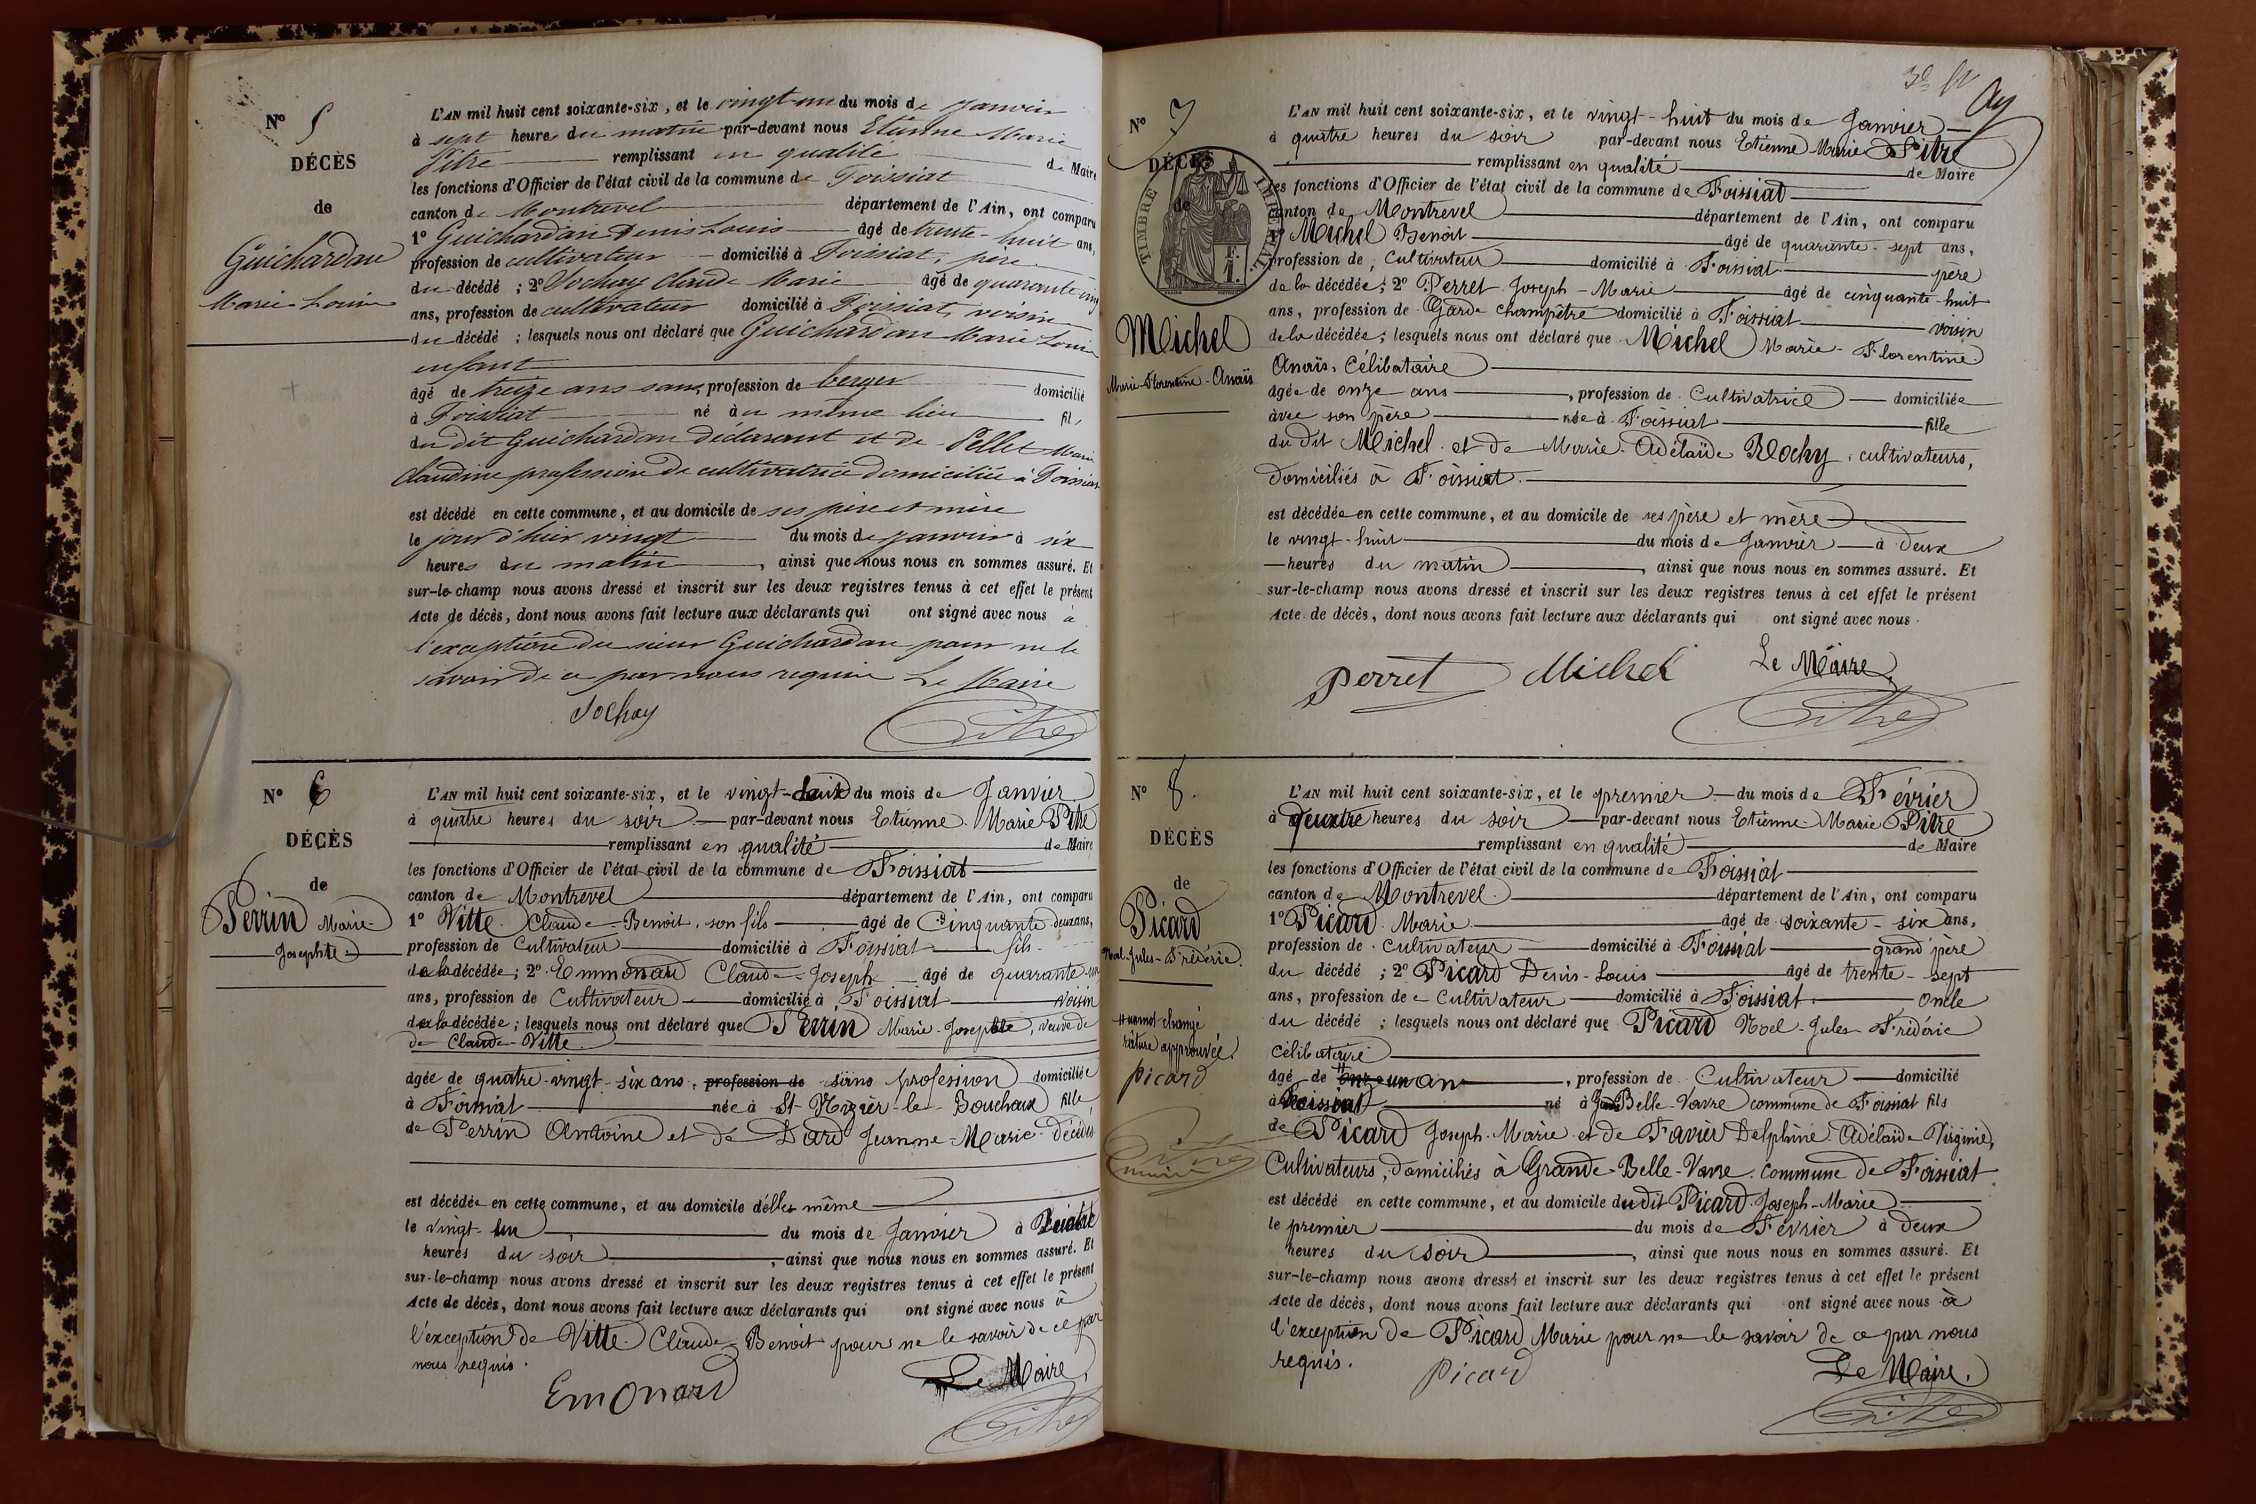 N° 5
DÉCÈS
de
Guichardan
Marie Louis
L'AN mil huit cent soixante-six, et le vingt-un du mois de janvier
à sept heures du matin par-devant nous Etienne Marie
Pitre remplissant en qualité de Maire
les fonctions d'Officier de l'état civil de la commune de Foissiat
canton de Montrevel département de l'Ain, ont comparu
1° Guichardan Denis Louis âgé de trente-huit ans,
profession de cultivateur domicilié à Foissiat, père
du décédé ; 2° Sochay Claude Marie âgé de quarante cinq
ans, profession de cultivateur domicilié à Foissiat, voisin
du décédé ; lesquels nous ont déclaré que Guichardan Marie Louis
enfant
âgé de treize ans sans profession de berger domicilié
à Foissiat né au même lieu fils
du dit Guichardan déclarant et de Pellet Marie
Claudine profession de cultivatrice domiciliée à Foissiat
est décédé en cette commune, et au domicile de ses père et mère
le jour d'hier vingt du mois de janvier à six
heures du matin, ainsi que nous nous en sommes assuré. Et
sur-le-champ nous avons dressé et inscrit sur les deux registres tenus à cet effet le présent
Acte de décès, dont nous avons fait lecture aux déclarants qui ont signé avec nous à
l'exception du sieur Guichardan pour ne le
savoir de ce par nous requis Le Maire
Sochay
Pitre
N° 6
DÉCÈS
de
Perrin Marie-
Josephte
L'AN mil huit cent soixante-six, et le vingt-deux du mois de Janvier
à quatre heures du soir par-devant nous Etienne Marie Pitre
remplissant en qualité de Maire
les fonctions d'Officier de l'état civil de la commune de Foissiat
canton de Montrevel département de l'Ain, ont comparu
1° Vitte Claude-Benoit, son fils âgé de Cinquante deux ans,
profession de Cultivateur domicilié à Foissiat fils
de la décédée ; 2° Emmonard Claude-Joseph âgé de quarante-un
ans, profession de Cultivateur domicilié à Foissiat voisin
de la décédée ; lesquels nous ont déclaré que Perrin Marie-Josephte, veuve de
de Claude Vitte
âgée de quatre-vingt-six ans, profession de sans profession domiciliée
à Foissiat née à St Nizier-le-Bouchoux fille
de Perrin Antoine et de Dard Jeanne-Marie décédés
est décédée en cette commune, et au domicile d'elle même
le vingt-un du mois de Janvier à quatre
heures du soir, ainsi que nous nous en sommes assuré. Et
sur-le-champ nous avons dressé et inscrit sur les deux registres tenus à cet effet le présent
Acte de décès, dont nous avons fait lecture aux déclarants qui ont signé avec nous à
l'exception de Vitte Claude-Benoit pour ne le savoir de ce par
nous requis.
Emonard
Le Maire
Pitre
N° 7
DÉCÈS
de
TIMBRE IMPÉRIAL
Michel
Marie-Florentine-Anaïs
L'AN mil huit cent soixante-six, et le vingt-huit du mois de Janvier
à quatre heures du soir par-devant nous Etienne Marie Pitre
remplissant en qualité de Maire
les fonctions d'Officier de l'état civil de la commune de Foissiat
canton de Montrevel département de l'Ain, ont comparu
1° Michel Benoit âgé de quarante-sept ans,
profession de Cultivateur domicilié à Foissiat père
de la décédée ; 2° Perret Joseph-Marie âgé de cinquante-huit
ans, profession de Garde champêtre domicilié à Foissiat voisin
de la décédée ; lesquels nous ont déclaré que Michel Marie-Florentine
Anaïs, Célibataire
âgée de onze ans, profession de Cultivatrice domiciliée
avec son père née à Foissiat fille
du dit Michel et de Marie-Adélaïde Rochy, cultivateurs,
domiciliés à Foissiat.
est décédée en cette commune, et au domicile de ses père et mère
le vingt-huit du mois de Janvier à deux
heures du matin, ainsi que nous nous en sommes assuré. Et
sur-le-champ nous avons dressé et inscrit sur les deux registres tenus à cet effet le présent
Acte de décès, dont nous avons fait lecture aux déclarants qui ont signé avec nous.
Perret Michel Le Maire
Pitre
N° 8.
DÉCÈS
de
Picard
Noel-Jules-Frédéric.
un mot changé
rature approuvée.
Picard
Pitre
maire
L'AN mil huit cent soixante-six, et le premier du mois de Février
à quatre heures du soir par-devant nous Etienne-Marie Pitre
remplissant en qualité de Maire
les fonctions d'Officier de l'état civil de la commune de Foissiat
canton de Montrevel département de l'Ain, ont comparu
1° Picard Marie âgé de soixante-six ans,
profession de Cultivateur domicilié à Foissiat grand père
du décédé ; 2° Picard Denis-Louis âgé de trente-sept
ans, profession de Cultivateur domicilié à Foissiat oncle
du décédé ; lesquels nous ont déclaré que Picard Noel-Jules-Frédéric
célibataire
âgé de un an, profession de Cultivateur domicilié
à Foissiat né à Belle-Vavre commune de Foissiat fils
de Picard Joseph-Marie et de Favier Delphine Adélaïde Virginie,
Cultivateurs, domiciliés à Grande-Belle-Vavre commune de Foissiat
est décédé en cette commune, et au domicile du dit Picard Joseph-Marie
le premier du mois de Février à deux
heures du soir, ainsi que nous nous en sommes assuré. Et
sur-le-champ nous avons dressé et inscrit sur les deux registres tenus à cet effet le présent
Acte de décès, dont nous avons fait lecture aux déclarants qui ont signé avec nous à
l'exception de Picard Marie pour ne le savoir de ce par nous
requis.
Picard
Le Maire.
Pitre